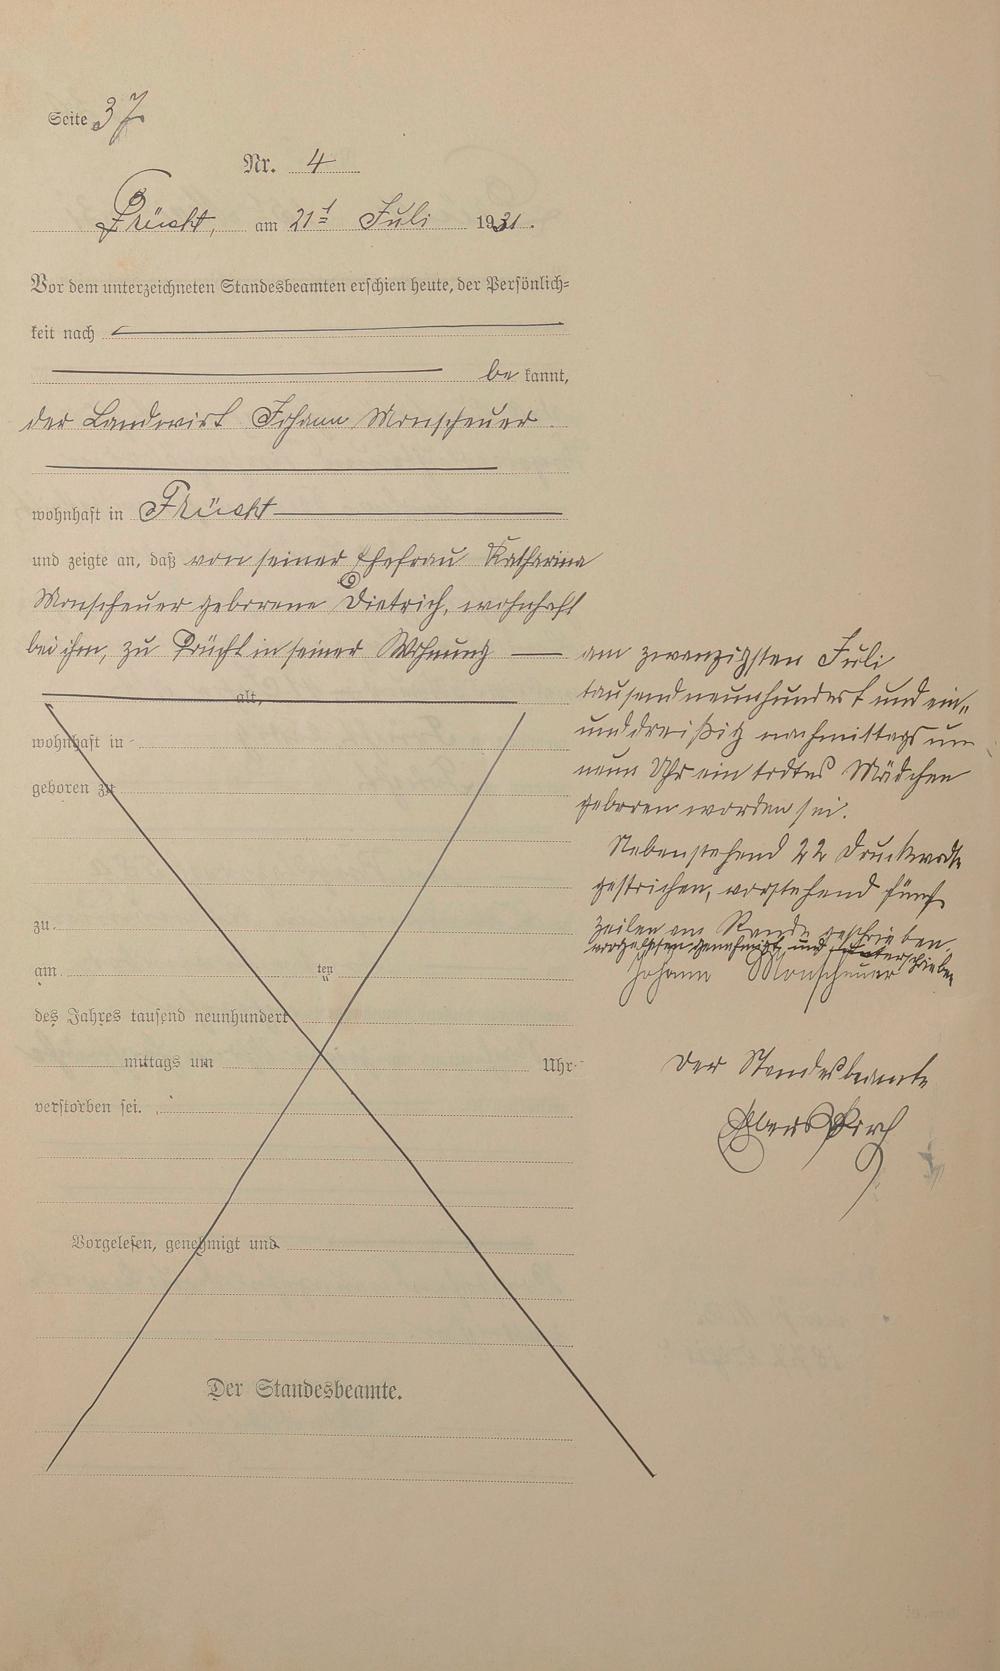 Seite 37
Nr. 4
Frücht, am 21ten Juli 1931.
Vor dem unterzeichneten Standesbeamten erschien heute, der Persönlich=
keit nach
be kannt,
der Landwirt Johann Monscheuer
wohnhaft in Frücht
und zeigte an, daß von seiner Ehefrau Katharina
Monscheuer geborene Dietrich, wohnhaft
bei ihm, zu Frücht in seiner Wohnung
am zwanzigsten Juli
tausendneunhundert und ein„
unddreißig nachmittags um
neun Uhr ein todtes Mädchen
geboren worden sei.
Nebenstehend 22 Druckworte
gestrichen, vorstehend fünf
Zeilen am Rande geschrieben.
vorgelesen genehmigt und unterschrieben
Johann Monscheuer
Der Standesbeamte
alt,
wohnhaft in
geboren zu
zu
am ten
des Jahres tausend neunhundert
mittags um Uhr
verstorben sei.
Vorgelesen, genehmigt und
Der Standesbeamte.